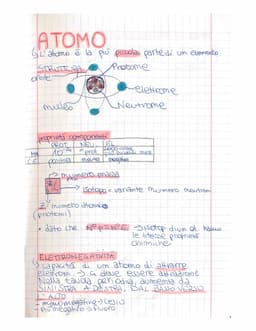 ATOMO
L'atomo è la più piccola parte di un elemento
STRUTTURA
Protone
orbite
elettrone
nucleo
Neutrone
proprietà componenti
PROT. NEU. EL.
positiva neutra negativa
numero massa
Isotopo = variante numero neutroni
Z: numero atomico
(protoni)
dato che N° p = N° e⁻ → isotopi di un el. hanno
le stesse proprietà
chimiche
ELETTRONEGATIVITÀ
capacità di un atomo di attrarre
elettroni → ci deve essere attrazione
Nella tavola periodica, aumenta da
SINISTRA A DESTRA, DAL BASSO VERSO
L'ALTO
- meno negativo → Cesio
- più negativo → fluoro